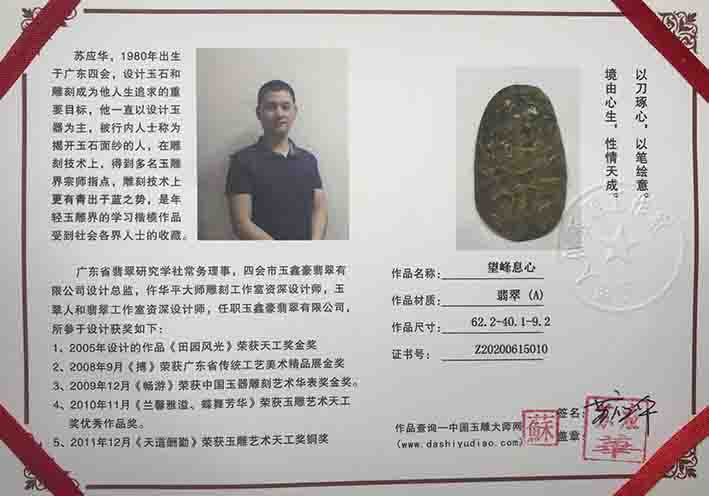 苏应华,1980年出生
于广东四会,设计玉石和
雕刻成为他人生追求的重
要目标,他一直以设计玉
器为主,被行内人士称为
揭开玉石面纱的人,在雕
刻技术上,得到多名玉雕
界宗师指点,雕刻技术上
更有青出于蓝之势,是年
轻玉雕界的学习楷模作品
受到社会各界人士的收藏。
以刀琢心,以笔绘意。
境由心生,性情天成。
广东省翡翠研究学社常务理事,四会市玉鑫豪翡翠有
限公司设计总监,作华平大师雕刻工作室资深设计师,玉
翠人和翡翠工作室资深设计师,任职玉鑫豪翡翠有限公司,
所参于设计获奖如下:
1、2005年设计的作品《田园风光》荣获天工奖金奖
2、2008年9月《搏》荣获广东省传统工艺美术精品展金奖
3、2009年12月《畅游》荣获中国玉器雕刻艺术华表奖金奖。
4、2010年11月《兰馨雅溢、蝶舞芳华》荣获玉雕艺术天工
奖优秀作品奖。
5、2011年12月《天道酬勤》荣获玉雕艺术天工奖铜奖
作品名称: 望峰息心
作品材质: 翡翠 (A)
作品尺寸: 62.2-40.1-9.2
证书号: Z20200615010
签名:
盖章:
作品查询—中国玉雕大师网
(www.dashiyudiao.com)
蘇
華